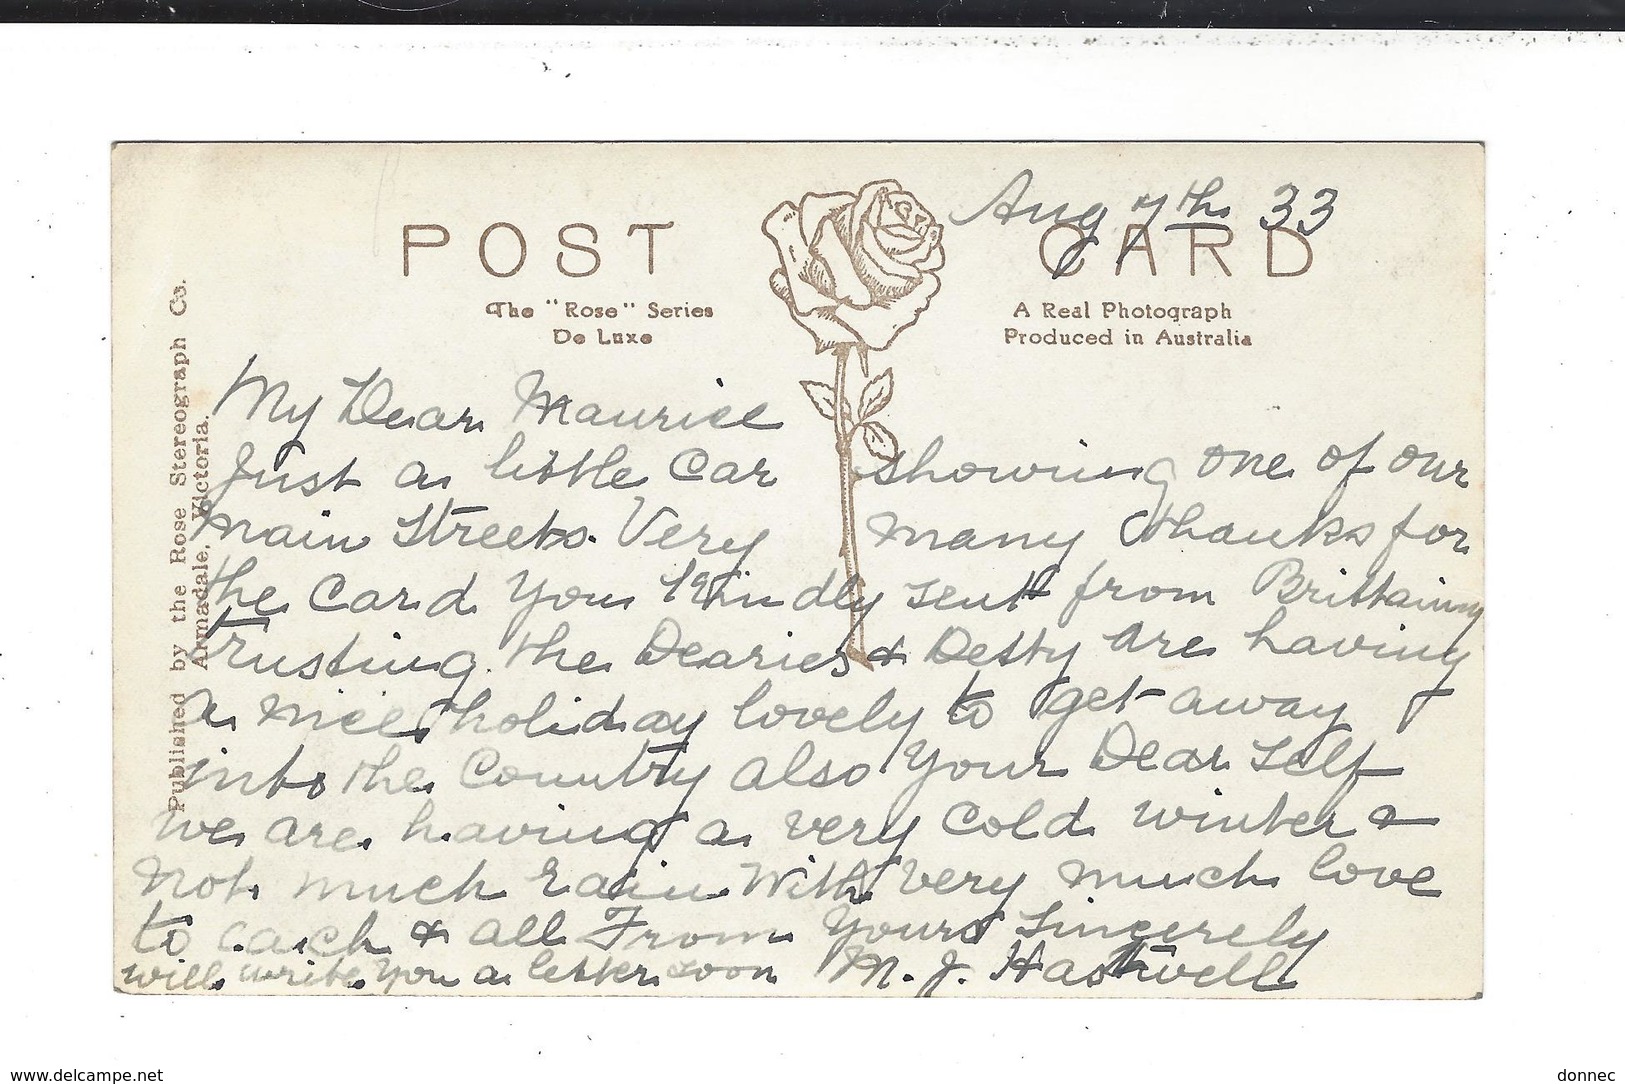 Aug 7th 33
POST CARD
The "Rose" Series
De Luxe
A Real Photograph
Produced in Australia
Published by the Rose Stereograph Co.
Armadale, Victoria.
My Dear Maurice
Just a little Car showing one of our
main Streets. Very many thanks for
the Card you kindly sent from Brittainy
Trusting the Dearies & Detty are having
a nice holiday lovely to get away
into the Country also your Dear self
we are having a very cold winter &
not much rain With very much love
to each & all From yours Sincerely
will write you a letter soon M. J. Hastwell
www.delcampe.net
donnec